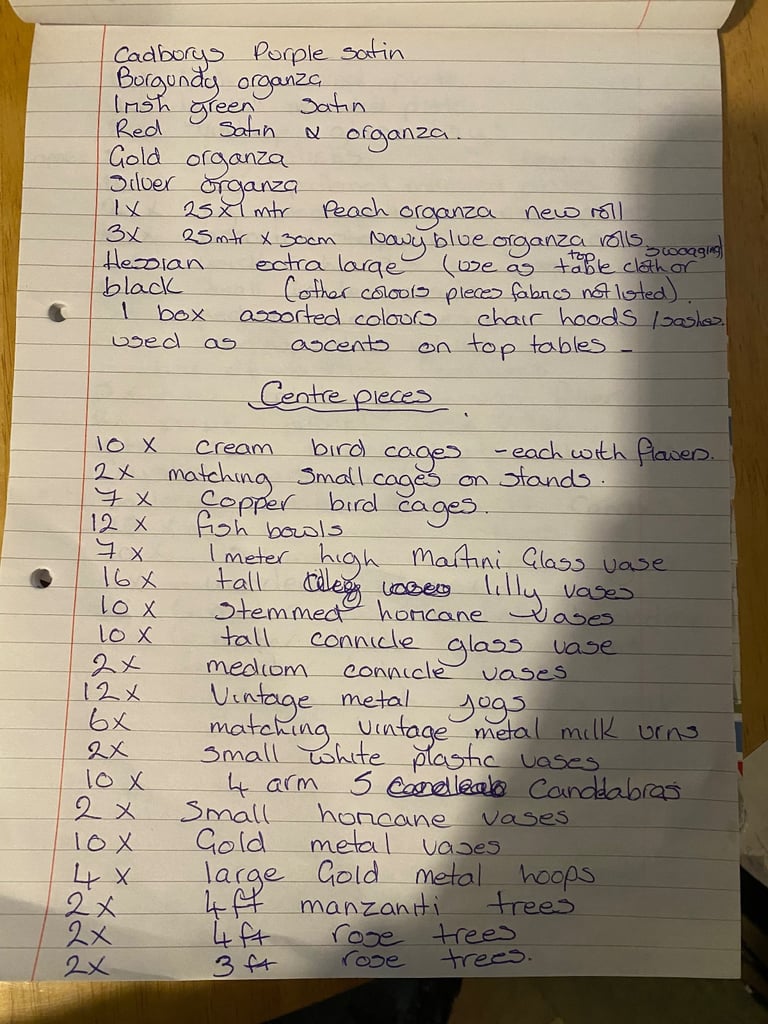 Cadburys Purple satin
Burgundy organza
Irish green satin
Red satin & organza.
Gold organza
Silver organza
1x 25x1mtr Peach organza new roll
3x 25mtr x 30cm Navy blue organza rolls swagging)
Hessian extra large (use as top table cloth or
black (other colours pieces fabrics not listed).
1 box assorted colours chair hoods / sashes
used as ascents on top tables -
Centre pieces.
10 x cream bird cages - each with flowers.
2x matching small cages on stands.
7 x Copper bird cages.
12 x fish bowls
7 x 1 meter high Martini Glass vase
16 x tall lilly vases
10 x Stemmed huricane vases
10 x tall connicle glass vase
2x medium connicle vases
12x Vintage metal jugs
6x matching vintage metal milk urns
2x small white plastic vases
10 x 4 arm 5 Canddabras
2 x Small huricane vases
10 x Gold metal vases
4 x large Gold metal hoops
2 x 4ft manzaniti trees
2x 4ft rose trees
2x 3ft rose trees.